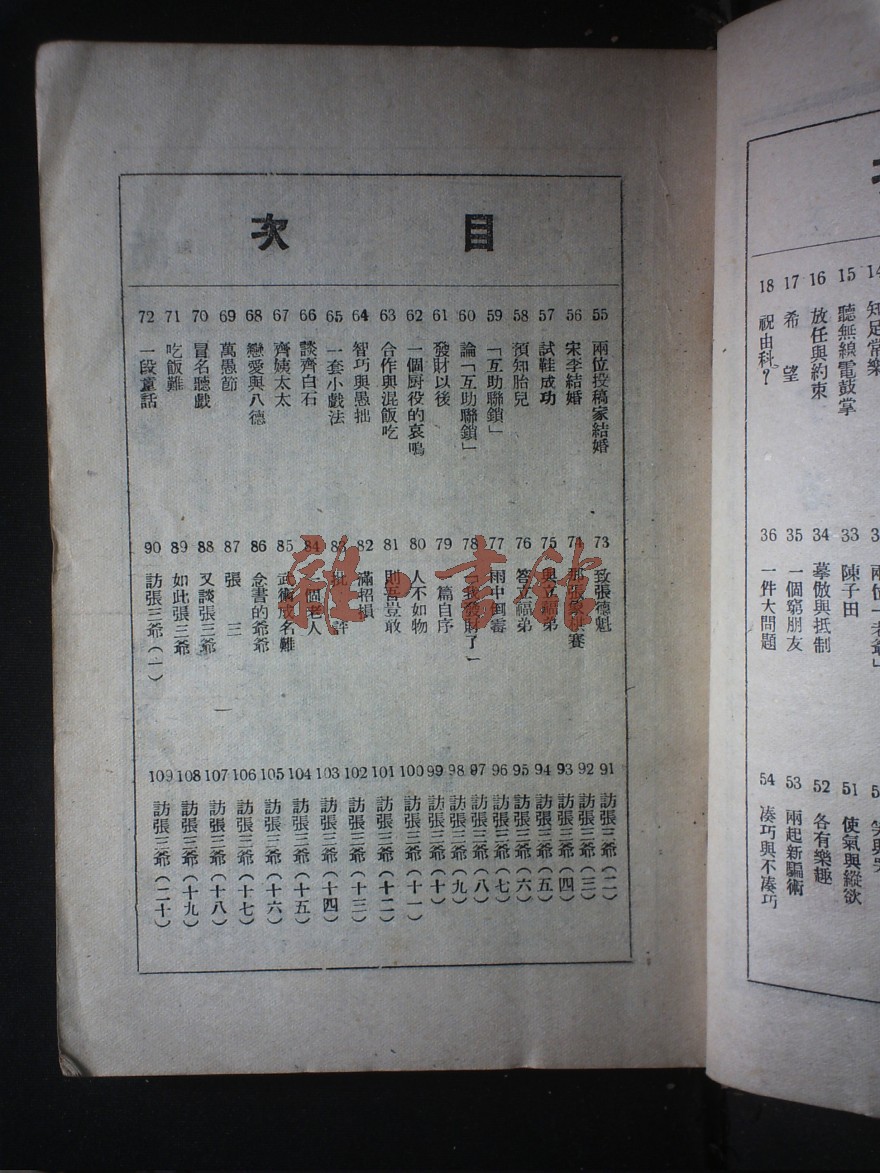 目次
55 兩位投稿家結婚
56 宋李結婚
57 試鞋成功
58 預知胎兒
59 「互助聯鎖」
60 論「互助聯鎖」
61 發財以後
62 一個厨役的哀鳴
63 合作與混飯吃
64 智巧與愚拙
65 一套小戲法
66 談齊白石
67 齊姨太太
68 戀愛與八德
69 萬愚節
70 冒名聽戲
71 吃飯難
72 一段童話
73 致張德魁
74 賽
75 與立福弟
76 答立福弟
77 雨中倒霉
78 「我發財了」
79 篇自序
80 人不如物
81 則吾豈敢
82 滿招損
83 批評
84 一個老人
85 武術成名難
86 念書的爺爺
87 張三
88 又談張三爺
89 如此張三爺
90 訪張三爺(一)
91 訪張三爺(二)
92 訪張三爺(三)
93 訪張三爺(四)
94 訪張三爺(五)
95 訪張三爺(六)
96 訪張三爺(七)
97 訪張三爺(八)
98 訪張三爺(九)
99 訪張三爺(十)
100 訪張三爺(十一)
101 訪張三爺(十二)
102 訪張三爺(十三)
103 訪張三爺(十四)
104 訪張三爺(十五)
105 訪張三爺(十六)
106 訪張三爺(十七)
107 訪張三爺(十八)
108 訪張三爺(十九)
109 訪張三爺(二十)
一
14 知足常樂
15 聽無線電鼓掌
16 放任與約束
17 希望
18 祝由科?
兩位「老爺」
33 陳子田
34 摹倣與抵制
35 一個窮朋友
36 一件大問題
51 使氣與縱欲
52 各有樂趣
53 兩起新騙術
54 凑巧與不凑巧
雜書館